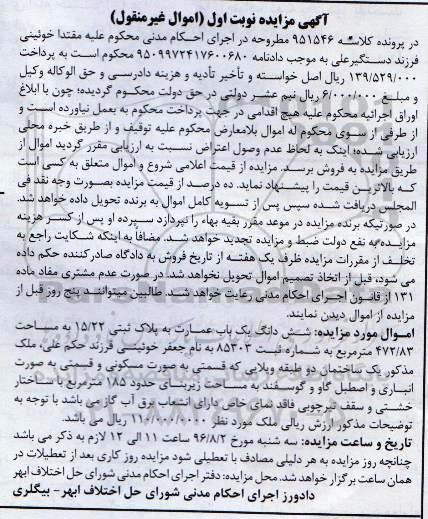 آگهی مزایده نوبت اول (اموال غیرمنقول)
در پرونده کلاسه ۹۵۱۵۴۶ مطروحه در اجرای احکام مدنی محکوم علیه مقتدا خوئینی
فرزند دستگیرعلی به موجب دادنامه ۹۵۰۹۹۷۲۴۱۷۶۰۰۶۸۰ محکوم است به پرداخت
۱۳۹/۵۲۹/۰۰۰ ریال اصل خواسته و تأخیر تأدیه و هزینه دادرسی و حق الوکاله وکیل
و مبلغ ۶/۰۰۰/۰۰۰ ریال نیم عشر دولتی در حق دولت محکوم گردیده؛ چون با ابلاغ
اوراق اجرائیه محکوم علیه هیچ اقدامی در جهت پرداخت محکوم به بعمل نیاورده است و
از طرفی از سوی محکوم له اموال بلامعارض محکوم علیه توقیف و از طریق خبره محلی
ارزیابی شده؛ اینک به لحاظ عدم وصول اعتراض نسبت به ارزیابی مقرر گردید اموال از
طریق مزایده به فروش برسد. مزایده از قیمت اعلامی شروع و اموال متعلق به کسی است
که بالاترین قیمت را پیشنهاد نماید. ده درصد از قیمت مزایده بصورت وجه نقد فی
المجلس دریافت شده سپس پس از تسویه کامل اموال به برنده تحویل داده خواهد شد.
در صورتیکه برنده مزایده در موعد مقرر بقیه بهاء را نپردازد سپرده او پس از کسر هزینه
مزایده به نفع دولت ضبط و مزایده تجدید خواهد شد. مضافاً به اینکه شکایت راجع به
تخلف از مقررات مزایده ظرف یک هفته از تاریخ فروش به دادگاه صادرکننده حکم داده
می شود، قبل از اتخاذ تصمیم اموال تحویل نخواهد شد. در صورت عدم مشتری مفاد ماده
۱۳۱ از قانون اجرای احکام مدنی رعایت خواهد شد. طالبین میتوانند پنج روز قبل از
مزایده از اموال دیدن نمایند.
اموال مورد مزایده: شش دانگ یک باب عمارت به پلاک ثبتی ۱۵/۲۲ به مساحت
۴۷۲/۸۳ مترمربع به شماره ثبت ۸۵۳۰۳ به نام جعفر خوئینی فرزند حکم علی، ملک
مذکور یک ساختمان دو طبقه ویلایی که قسمتی به صورت مسکونی و قسمتی به صورت
انباری و اصطبل گاو و گوسفند به مساحت زیربنای حدود ۱۸۵ مترمربع با ساختار
خشتی و سقف تیرچوبی فاقد نمای خاص دارای انشعاب برق آب گاز می باشد با توجه به
توضیحات مذکور ارزش ریالی ملک مورد نظر ۱۱۰/۰۰۰/۰۰۰ ریال می باشد.
تاریخ و ساعت مزایده: سه شنبه مورخ ۹۶/۸/۲ ساعت ۱۱ الی ۱۲ لازم به ذکر می باشد
چنانچه روز مزایده به هر دلیلی مصادف با تعطیلی شود مزایده روز کاری بعد از تعطیلات در
همان ساعت برگزار خواهد شد. محل مزایده: دفتر اجرای احکام مدنی شورای حل اختلاف ابهر
دادورز اجرای احکام مدنی شورای حل اختلاف ابهر- بیگلری